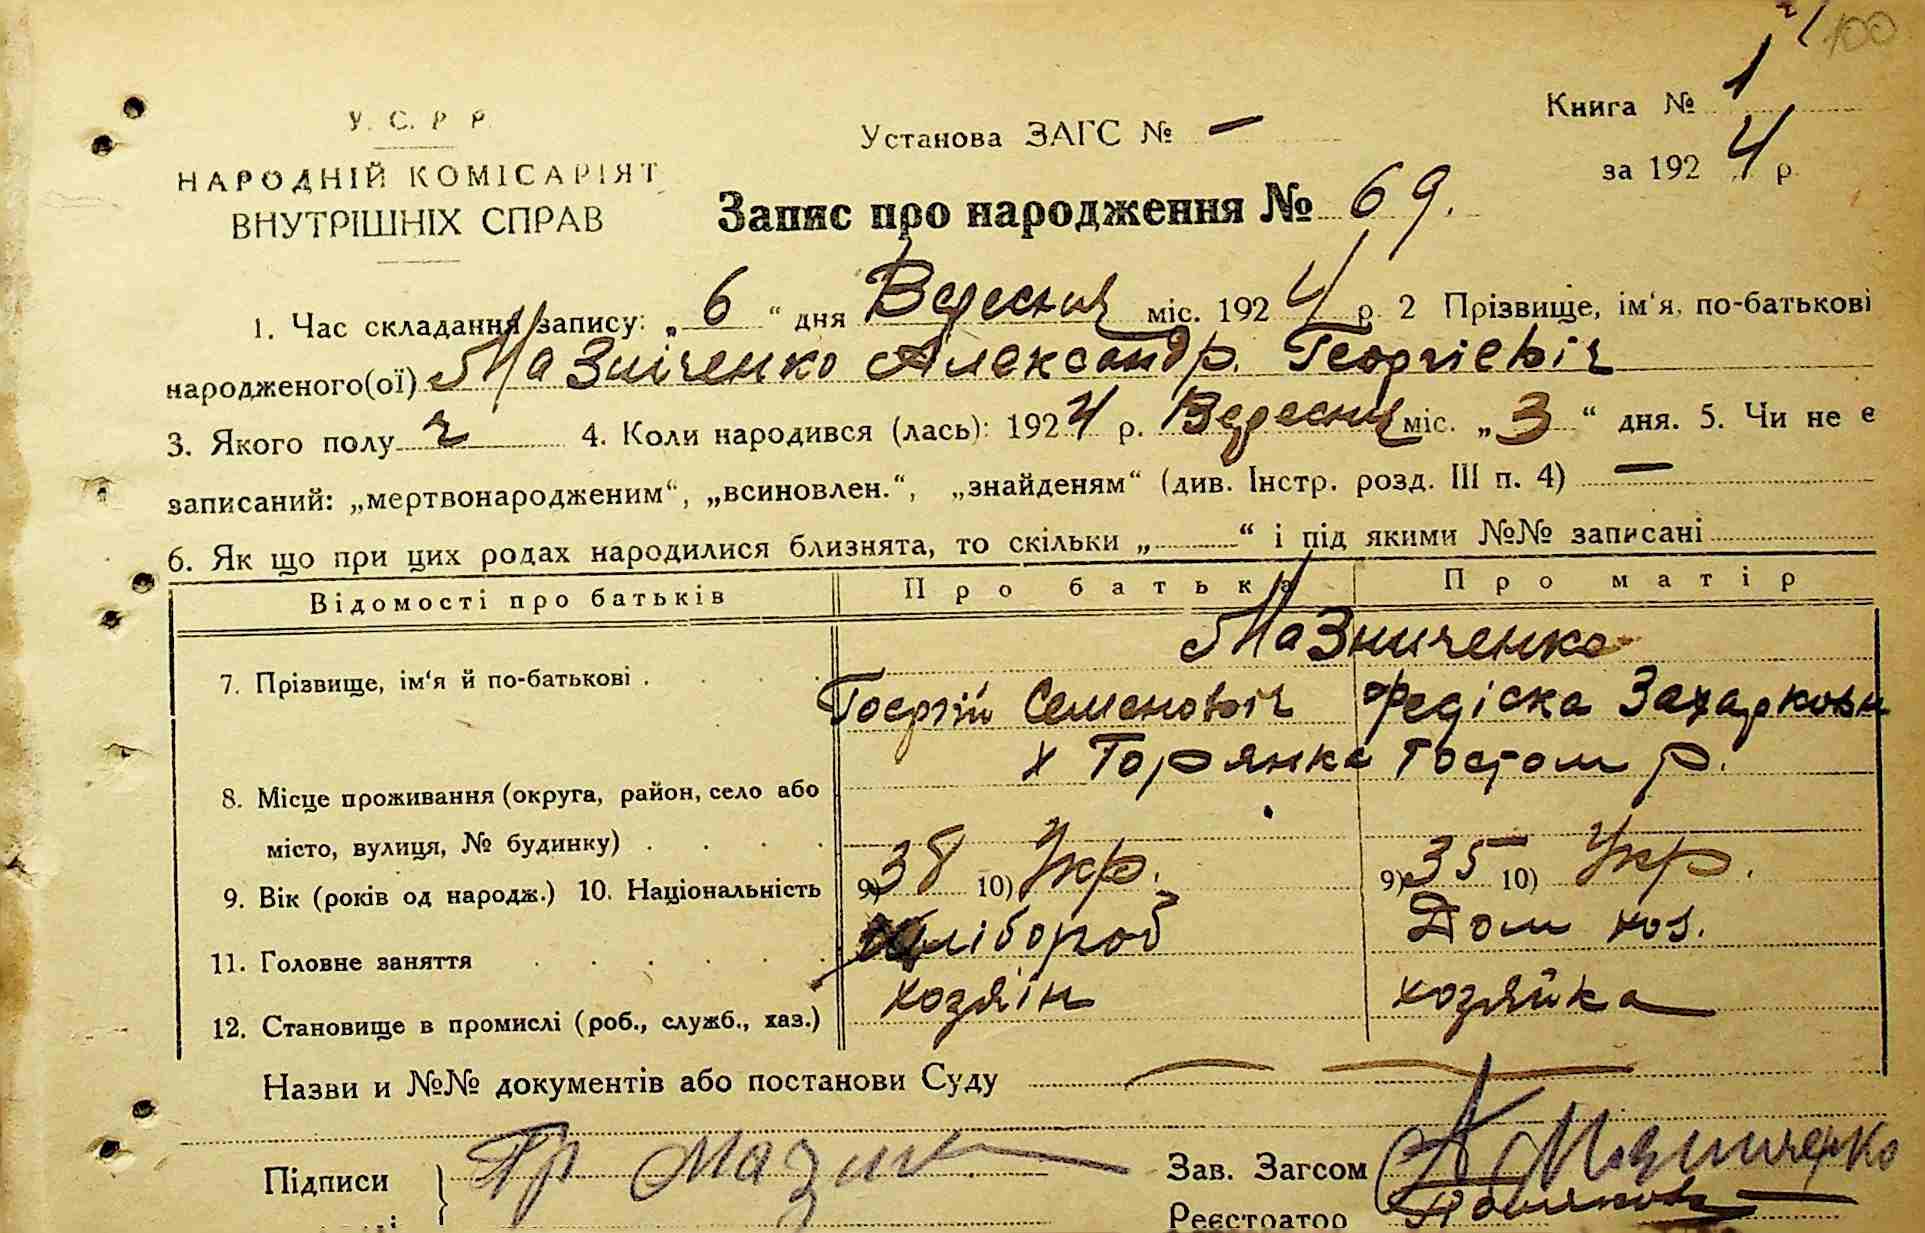 100
У. С. Р. Р.
НАРОДНІЙ КОМІСАРІЯТ
ВНУТРІШНІХ СПРАВ
Установа ЗАГС № —
Книга № 1
за 1924 р.
Запис про народження № 69.
1. Час складання запису: „6“ дня Вересня міс. 1924 р. 2 Прізвище, ім‘я, по-батькові
народженого(ої) Мазніченко Александр. Георгіевіч
3. Якого полу ч 4. Коли народився (лась): 1924 р. Вересня міс. „3“ дня. 5. Чи не є
записаний: „мертвонародженим“, „всиновлен.“, „знайденям“ (див. Інстр. розд. III п. 4) —
6. Як що при цих родах народилися близнята, то скільки „ “ і під якими №№ записані
Відомості про батьків Про батька Про матір
Мазниченко
7. Прізвище, ім‘я й по-батькові . Гоергій Семеновіч Федіска
х Горянка Гостом р.
8. Місце проживання (округа, район, село або
місто, вулиця, № будинку)
9. Вік (років од народж.) 10. Національність 9) 38 10) Укр. 9) 35 10) Укр.
11. Головне заняття хлібороб Дом хоз.
12. Становище в промислі (роб., служб., хаз.) хозяін хозяйка
Назви и №№ документів або постанови Суду —
Підписи Гр
Зав. Загсом А Мазниченко
Реєстратор